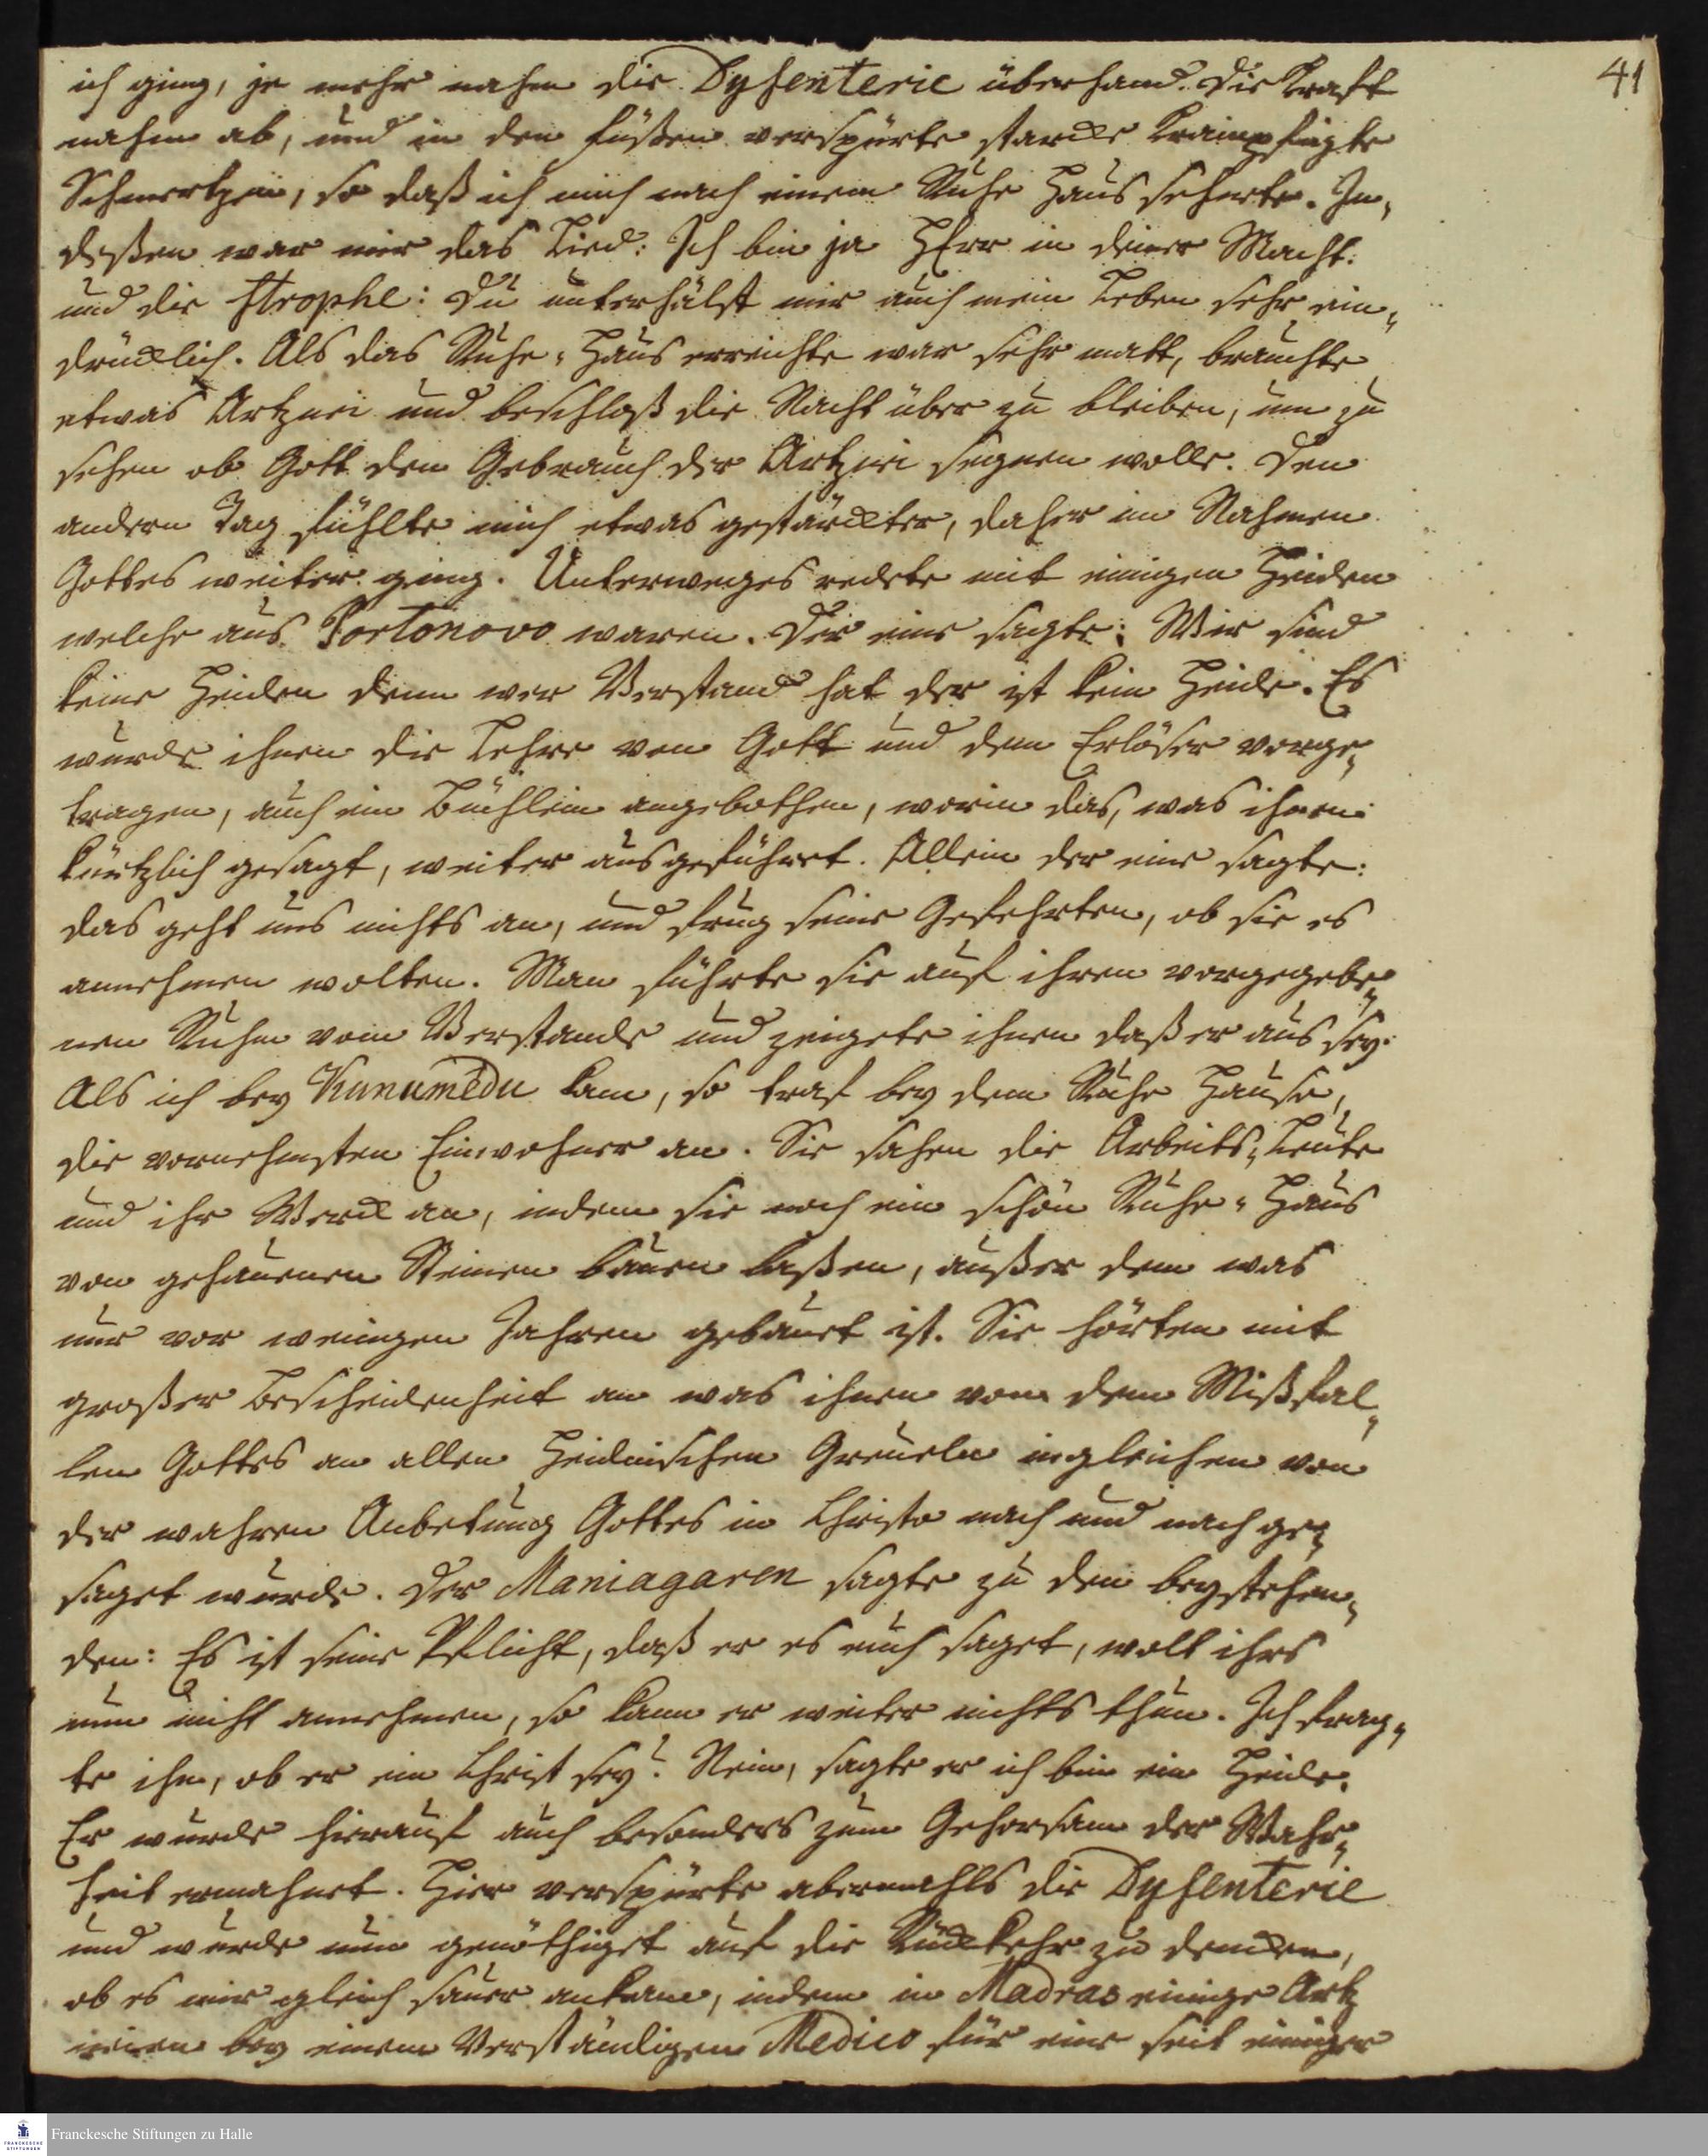 41
ich ging, je mehr nahm die Dysenterie überhand. Die Kraft
nahm ab, und in den füßen verspürte starcke krampfigte
Schmertzen, so daß ich mich nach einem Ruhe Haus sehnete. In„
deßen war mir das Lied: Ich bin ja HErr in deiner Macht.
und die strophe: Du unterhälst mir auch mein Leben sehr ein„
drücklich. Als das Ruhe„Haus erreichte war sehr matt, brauchte
etwas Artznei und beschloß die Nacht über zu bleiben, um zu
sehen ob Gott den Gebrauch der Artznei segnen wolle. Den
andern Tag fühlte mich etwas gestärckter, daher im Nahmen
Gottes weiter ging. Unterweges redete mit einigen Heiden
welche aus Portonovo waren. Der eine sagte: Wir sind
keine Heiden denn wer Verstand hat der ist kein Heide. Es
wurde ihnen die Lehre von Gott und dem Erlöser vorge„
tragen, auch ein Büchlein angebothen, worin das, was ihnen
kürtzlich gesagt, weiter ausgeführet. Allein der eine sagte:
das geht uns nichts an, und frug seine Gefehrten, ob sie es
annehmen wolten. Man führte sie auf ihren vorgegebe„
nen Ruhm vom Verstande und zeigete ihnen daß er aus sey.
Als ich bey Kunumedu kam, so traf bey dem Ruhe Hause,
die vornehmsten Einwohner an. Sie sahen die Arbeits„Leute
und ihr Werck an, indem sie noch ein schön Ruhe„Haus
von gehauenen Steinen bauen laßen, außer dem was
nur vor wenigen Jahren gebauet ist. Sie hörten mit
großer Bescheidenheit an was ihnen von dem Mißfal„
len Gottes an allen Heidnischen Greueln ingleichen von
der wahren Anbetung Gottes in Christo nach und nach ge„
saget wurde. Der Maniagaren sagte zu den beystehen„
den: Es ist seine Pflicht, daß er es euch saget, wolt ihrs
nun nicht annehmen, so kann er weiter nichts thun. Ich frag„
te ihn, ob er ein Christ sey? Nein, sagte er ich bin ein Heide.
Er wurde hierauf auch besonders zum Gehorsam der Wahr„
heit ermahnet. Hier verspürte abermahls die Dysenterie
und wurde nun genöthiget auf die Rückkehr zu dencken,
ob es mir gleich sauer ankam, indem in Madras einige Artz
neien bey einem Verständigen Medico für eine seit einiger
Franckesche Stiftungen zu Halle